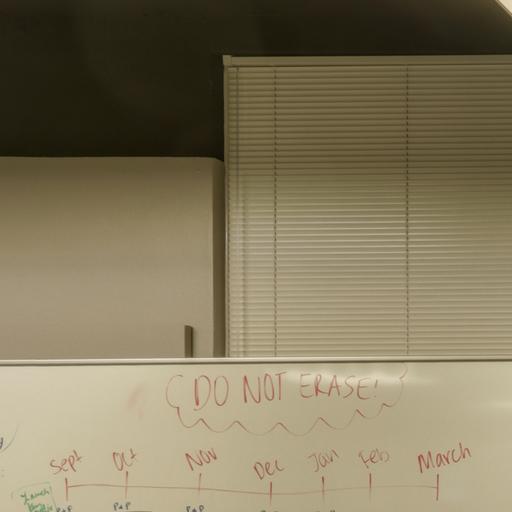 DO NOT ERASE!
Sept Oct Nov Dec Jan Feb March
Launch
P&P P&P P&P